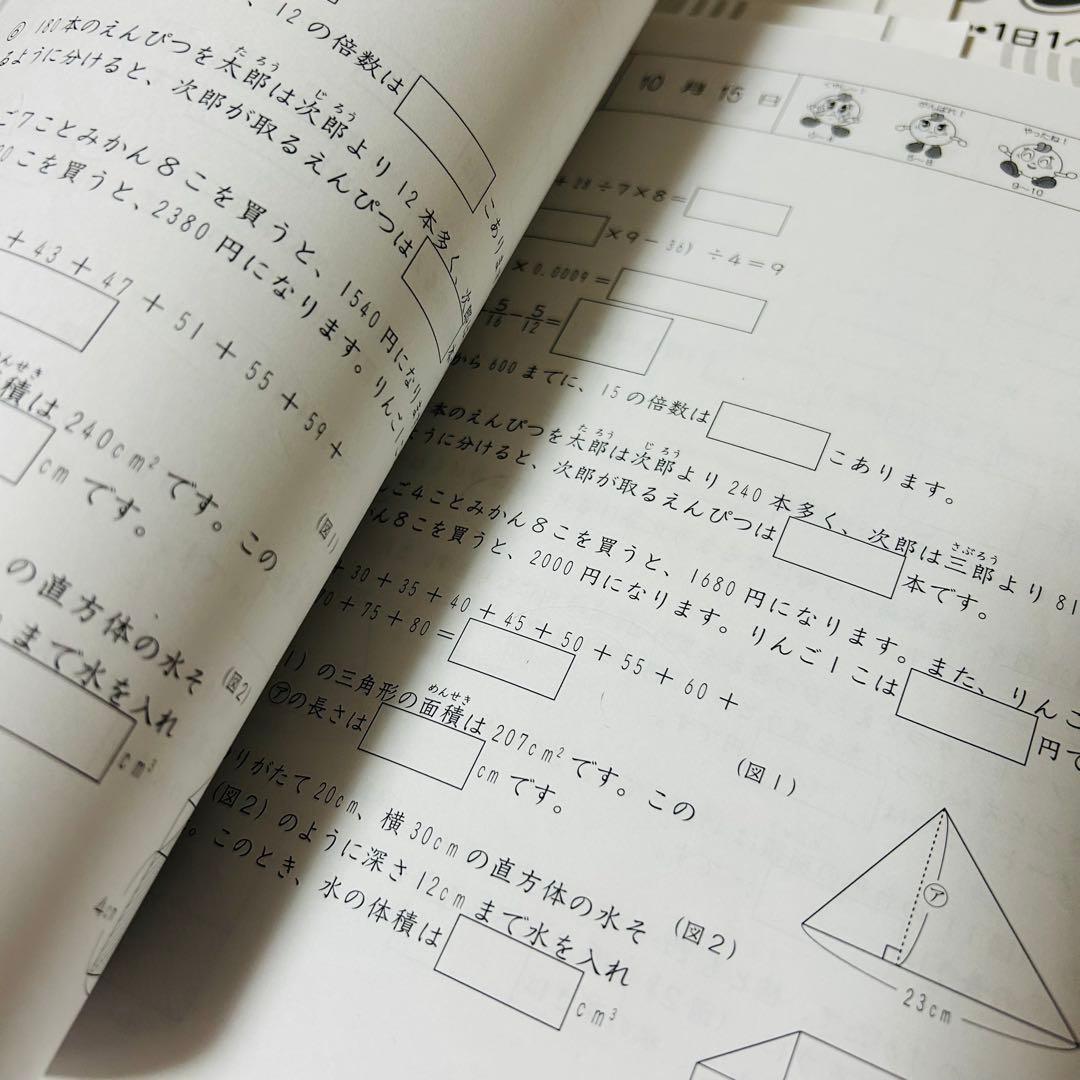 12の倍数は
こあり
⑥ 180本のえんぴつを太郎は次郎より12本多く、次郎
たろう
じろう
るように分けると、次郎が取るえんぴつは
ご7ことみかん8こを買うと、1540円になり
0こを買うと、2380円になります。りんご
+43+47+51+55+59+
めんせき
積は240cm²です。この
cmです。
(図1)
の直方体の水そ
まで水を入れ
(図2)
cm³
4cm
•1日1ペ
10月15日
がんばれ!
6~8
やったね!
9~10
+28÷7×8=
×9-36)÷4=9
×0.0009=
5/16-5/12=
から600までに、15の倍数は
こあります。
本のえんぴつを太郎は次郎より240本多く、次郎は三郎より81
たろう
じろう
さぶろう
ように分けると、次郎が取るえんぴつは
本です。
んご4ことみかん8こを買うと、1680円になります。また、りんご
ん8こを買うと、2000円になります。りんご1こは
円で
+30+35+40+45+50+55+60+
70+75+80=
1)の三角形の面積は207cm²です。この
めんせき
㋐の長さは
cmです。
(図1)
りがたて20cm、横30cmの直方体の水そ
(図2)のように深さ12cmまで水を入れ
。このとき、水の体積は
cm³
(図2)
㋐
23cm